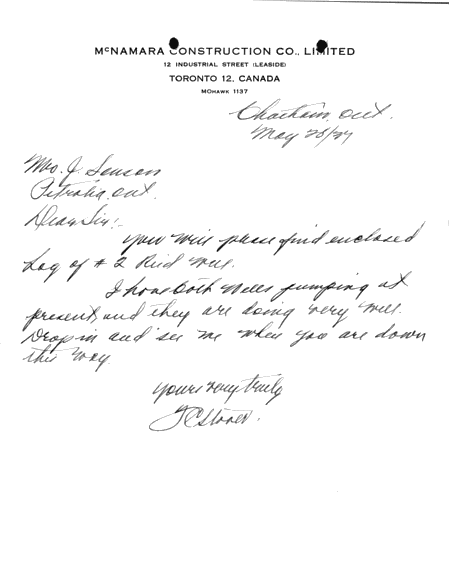 McNAMARA CONSTRUCTION CO., LIMITED
12 INDUSTRIAL STREET (LEASIDE)
TORONTO 12, CANADA
MOHAWK 1137
Chatham, Ont.
May 28/
Mr. J.
Petrolia, Ont.
Dear Sir:-
You will please find enclosed
Log of # 2 Reid Well.
I have both Wells pumping at
present, and they are doing very well.
Drop in and see me when you are down
this way.
Yours very truly